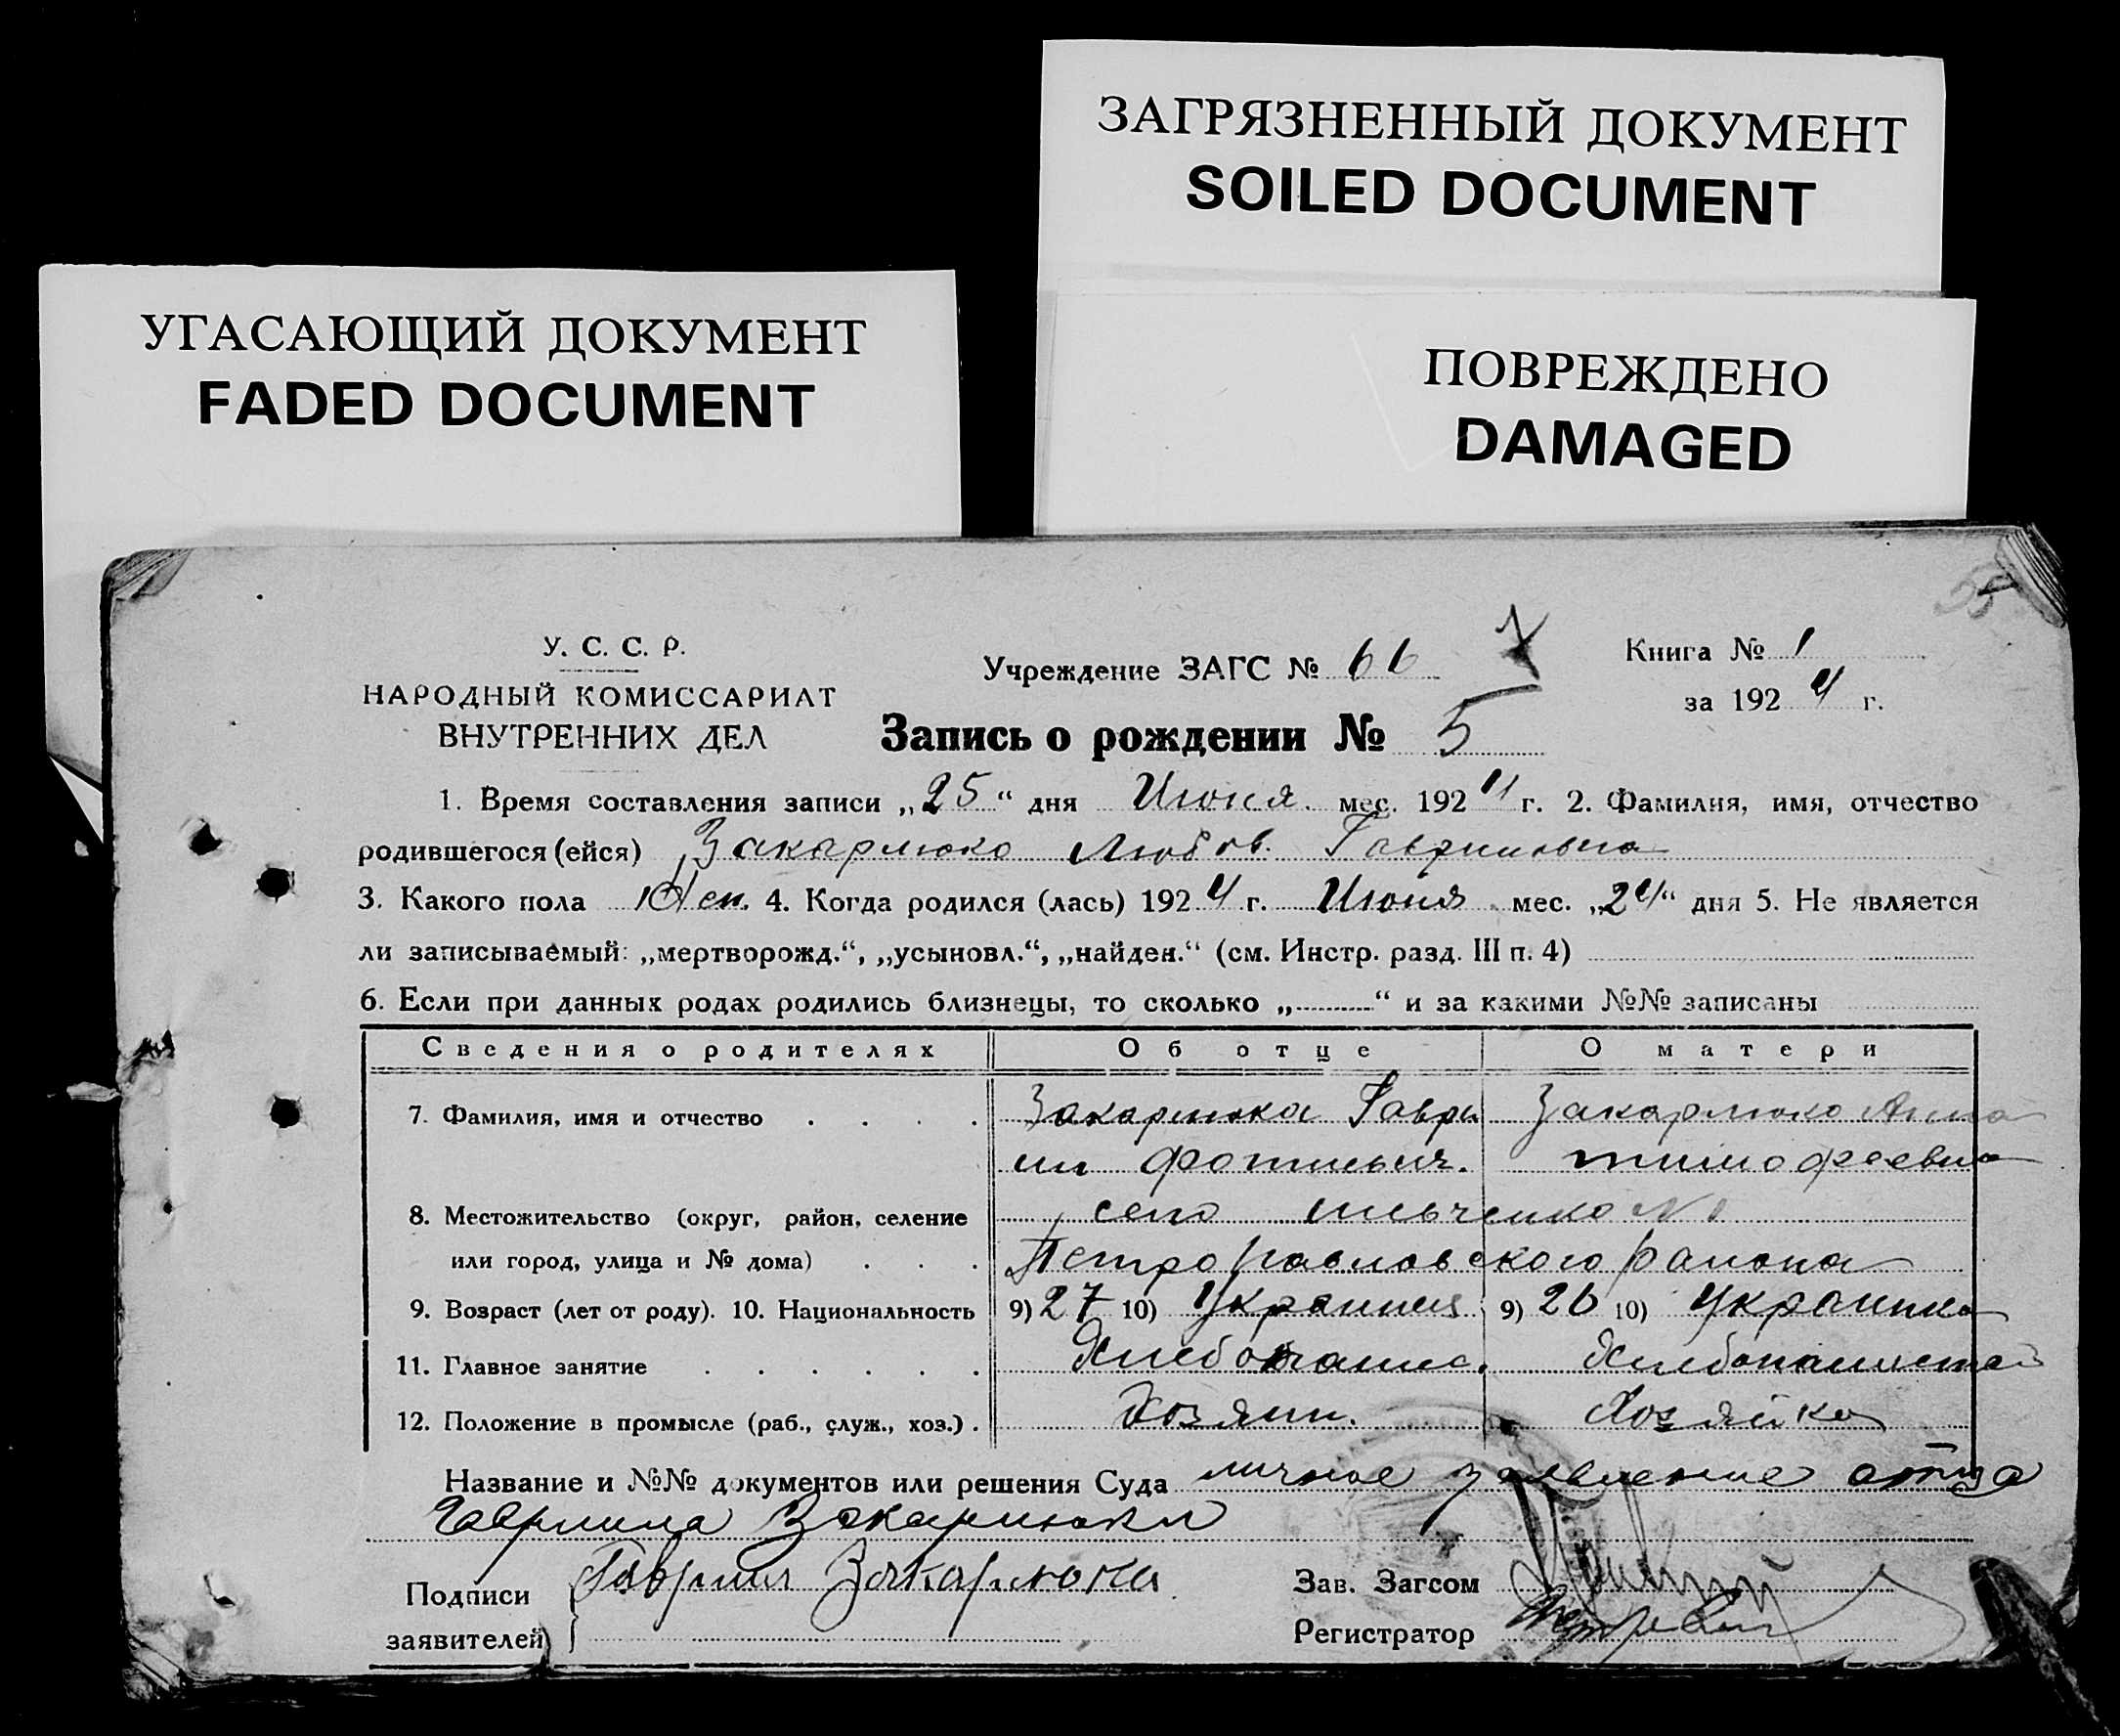 ЗАГРЯЗНЕННЫЙ ДОКУМЕНТ
SOILED DOCUMENT
УГАСАЮЩИЙ ДОКУМЕНТ
FADED DOCUMENT
ПОВРЕЖДЕНО
DAMAGED
У. С. С. Р.
НАРОДНЫЙ КОМИССАРИАТ
ВНУТРЕННИХ ДЕЛ
Учреждение ЗАГС № 66
Книга № 1
за 1924 г.
Запись о рождении № 5
1. Время составления записи „25“ дня Июня мес. 1924 г. 2. Фамилия, имя, отчество
родившегося (ейся) Закарлюка Любов. Гавриловна
3. Какого пола Жен. 4. Когда родился (лась) 1924 г. Июня мес. „24“ дня 5. Не является
ли записываемый: „мертворожд.“, „усыновл.“, „найден.“ (см. Инстр. разд. III п. 4)
6. Если при данных родах родились близнецы, то сколько „ “ и за какими №№ записаны
Сведения о родителях Об отце О матери
7. Фамилия, имя и отчество Закарлюка Гаври Закарлюка Анна
ил Фотиевич. Тимофеевна
8. Местожительство (округ, район, селение село
или город, улица и № дома) Петропавловского района
9. Возраст (лет от роду). 10. Национальность 9) 27 10) Украинец 9) 26 10) Украинка
11. Главное занятие Хлебопашец.
12. Положение в промысле (раб., служ., хоз.) Хозяин. Хозяйка
Название и №№ документов или решения Суда личное заявление отца
Гавриила Закарлюки
Подписи Гаврил Закарлюка Зав. Загсом
заявителей Регистратор